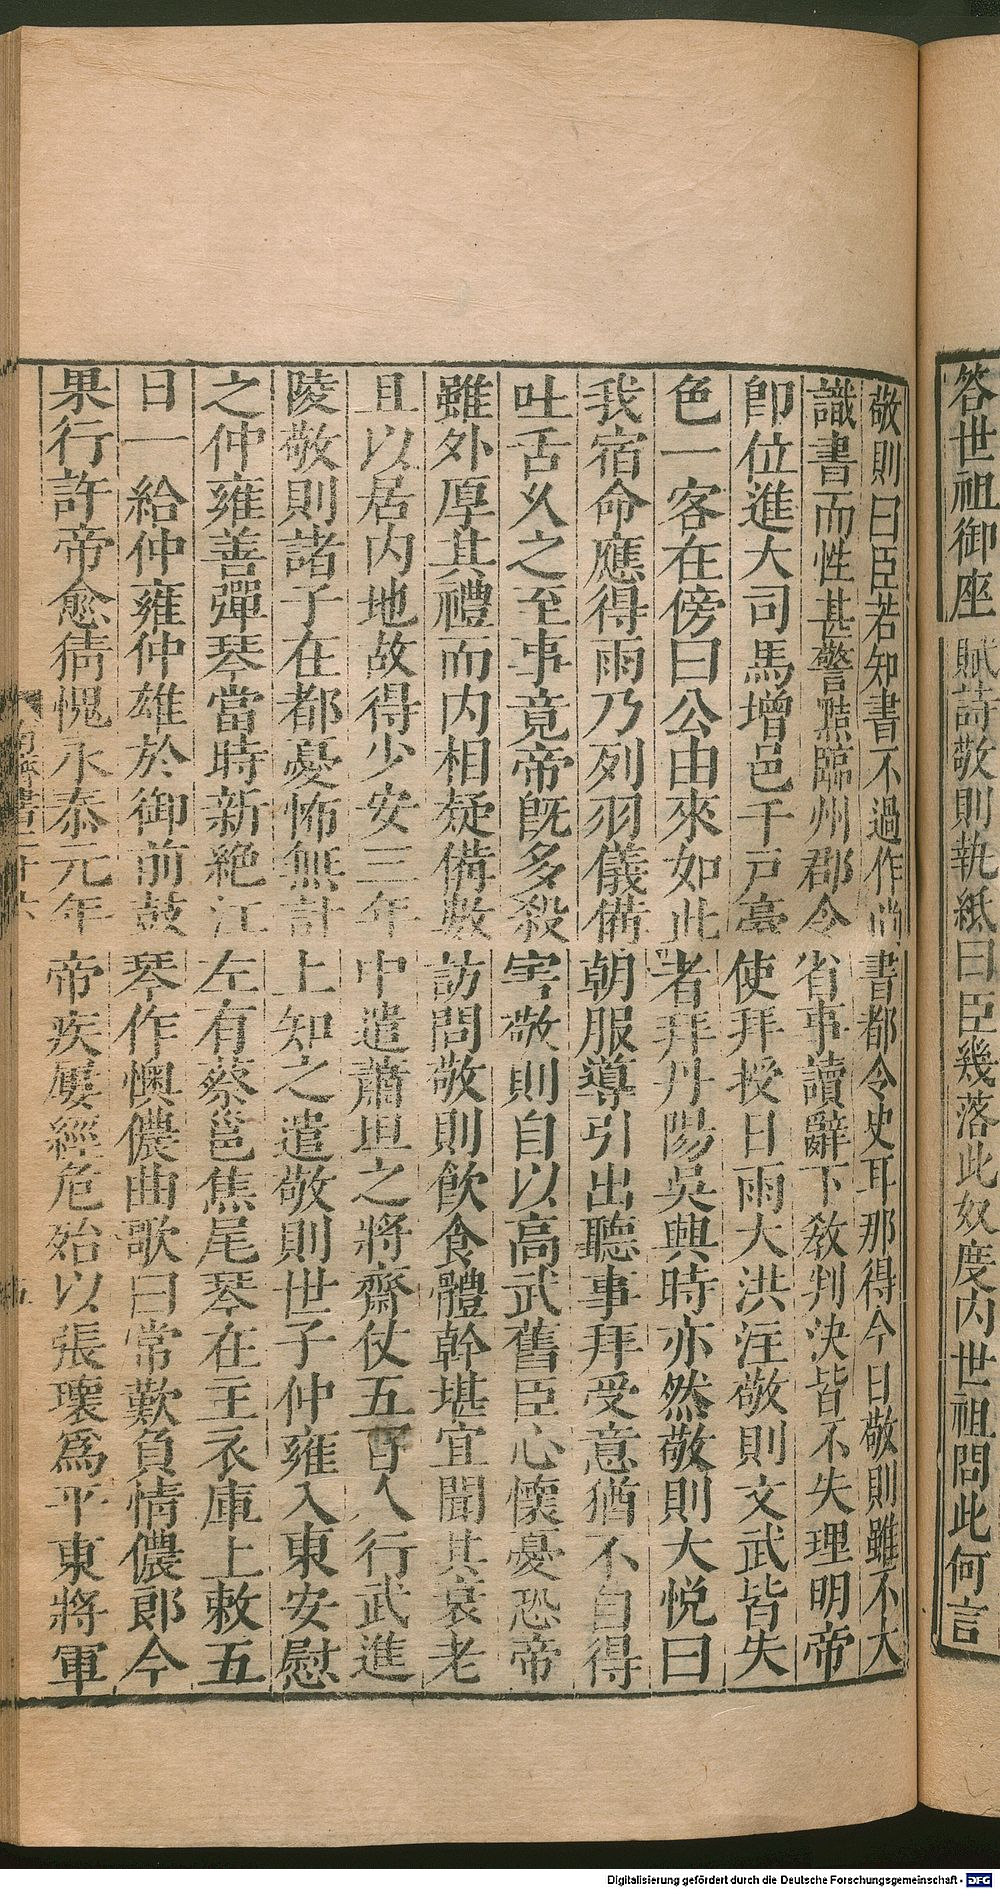 答世祖御座賦詩敬則執紙曰臣幾落此奴度内世祖問此何言
敬則曰臣若知書不過作尚書都令史耳那得今日敬則雖不大
識書而性甚警黠臨州郡令省事讀辭下敎判決皆不失理明帝
卽位進大司馬增邑千戸臺使拜授日雨大洪注敬則文武皆失
色一客在傍曰公由來如此者拜丹陽吳興時亦然敬則大悅曰
我宿命應得雨乃列羽儀備朝服導引出聽事拜受意猶不自得
吐舌乆之至事竟帝旣多殺害敬則自以高武舊臣心懷憂恐帝
雖外厚其禮而内相疑備數訪問敬則飮食體幹堪宜聞其衰老
且以居内地故得少安三年中遣蕭坦之將齋仗五百人行武進
陵敬則諸子在都憂怖無計上知之遣敬則世子仲雍入東安慰
之仲雍善彈琴當時新絶江左有蔡邕焦尾琴在主衣庫上敕五
日一給仲雍仲雄於御前鼓琴作懊儂曲歌曰常歎負情儂郞今
果行許帝愈猜愧永泰元年帝疾屢經危殆以張瓌爲平東將軍
Digitalisierung gefördert durch die Deutsche Forschungsgemeinschaft - DFG